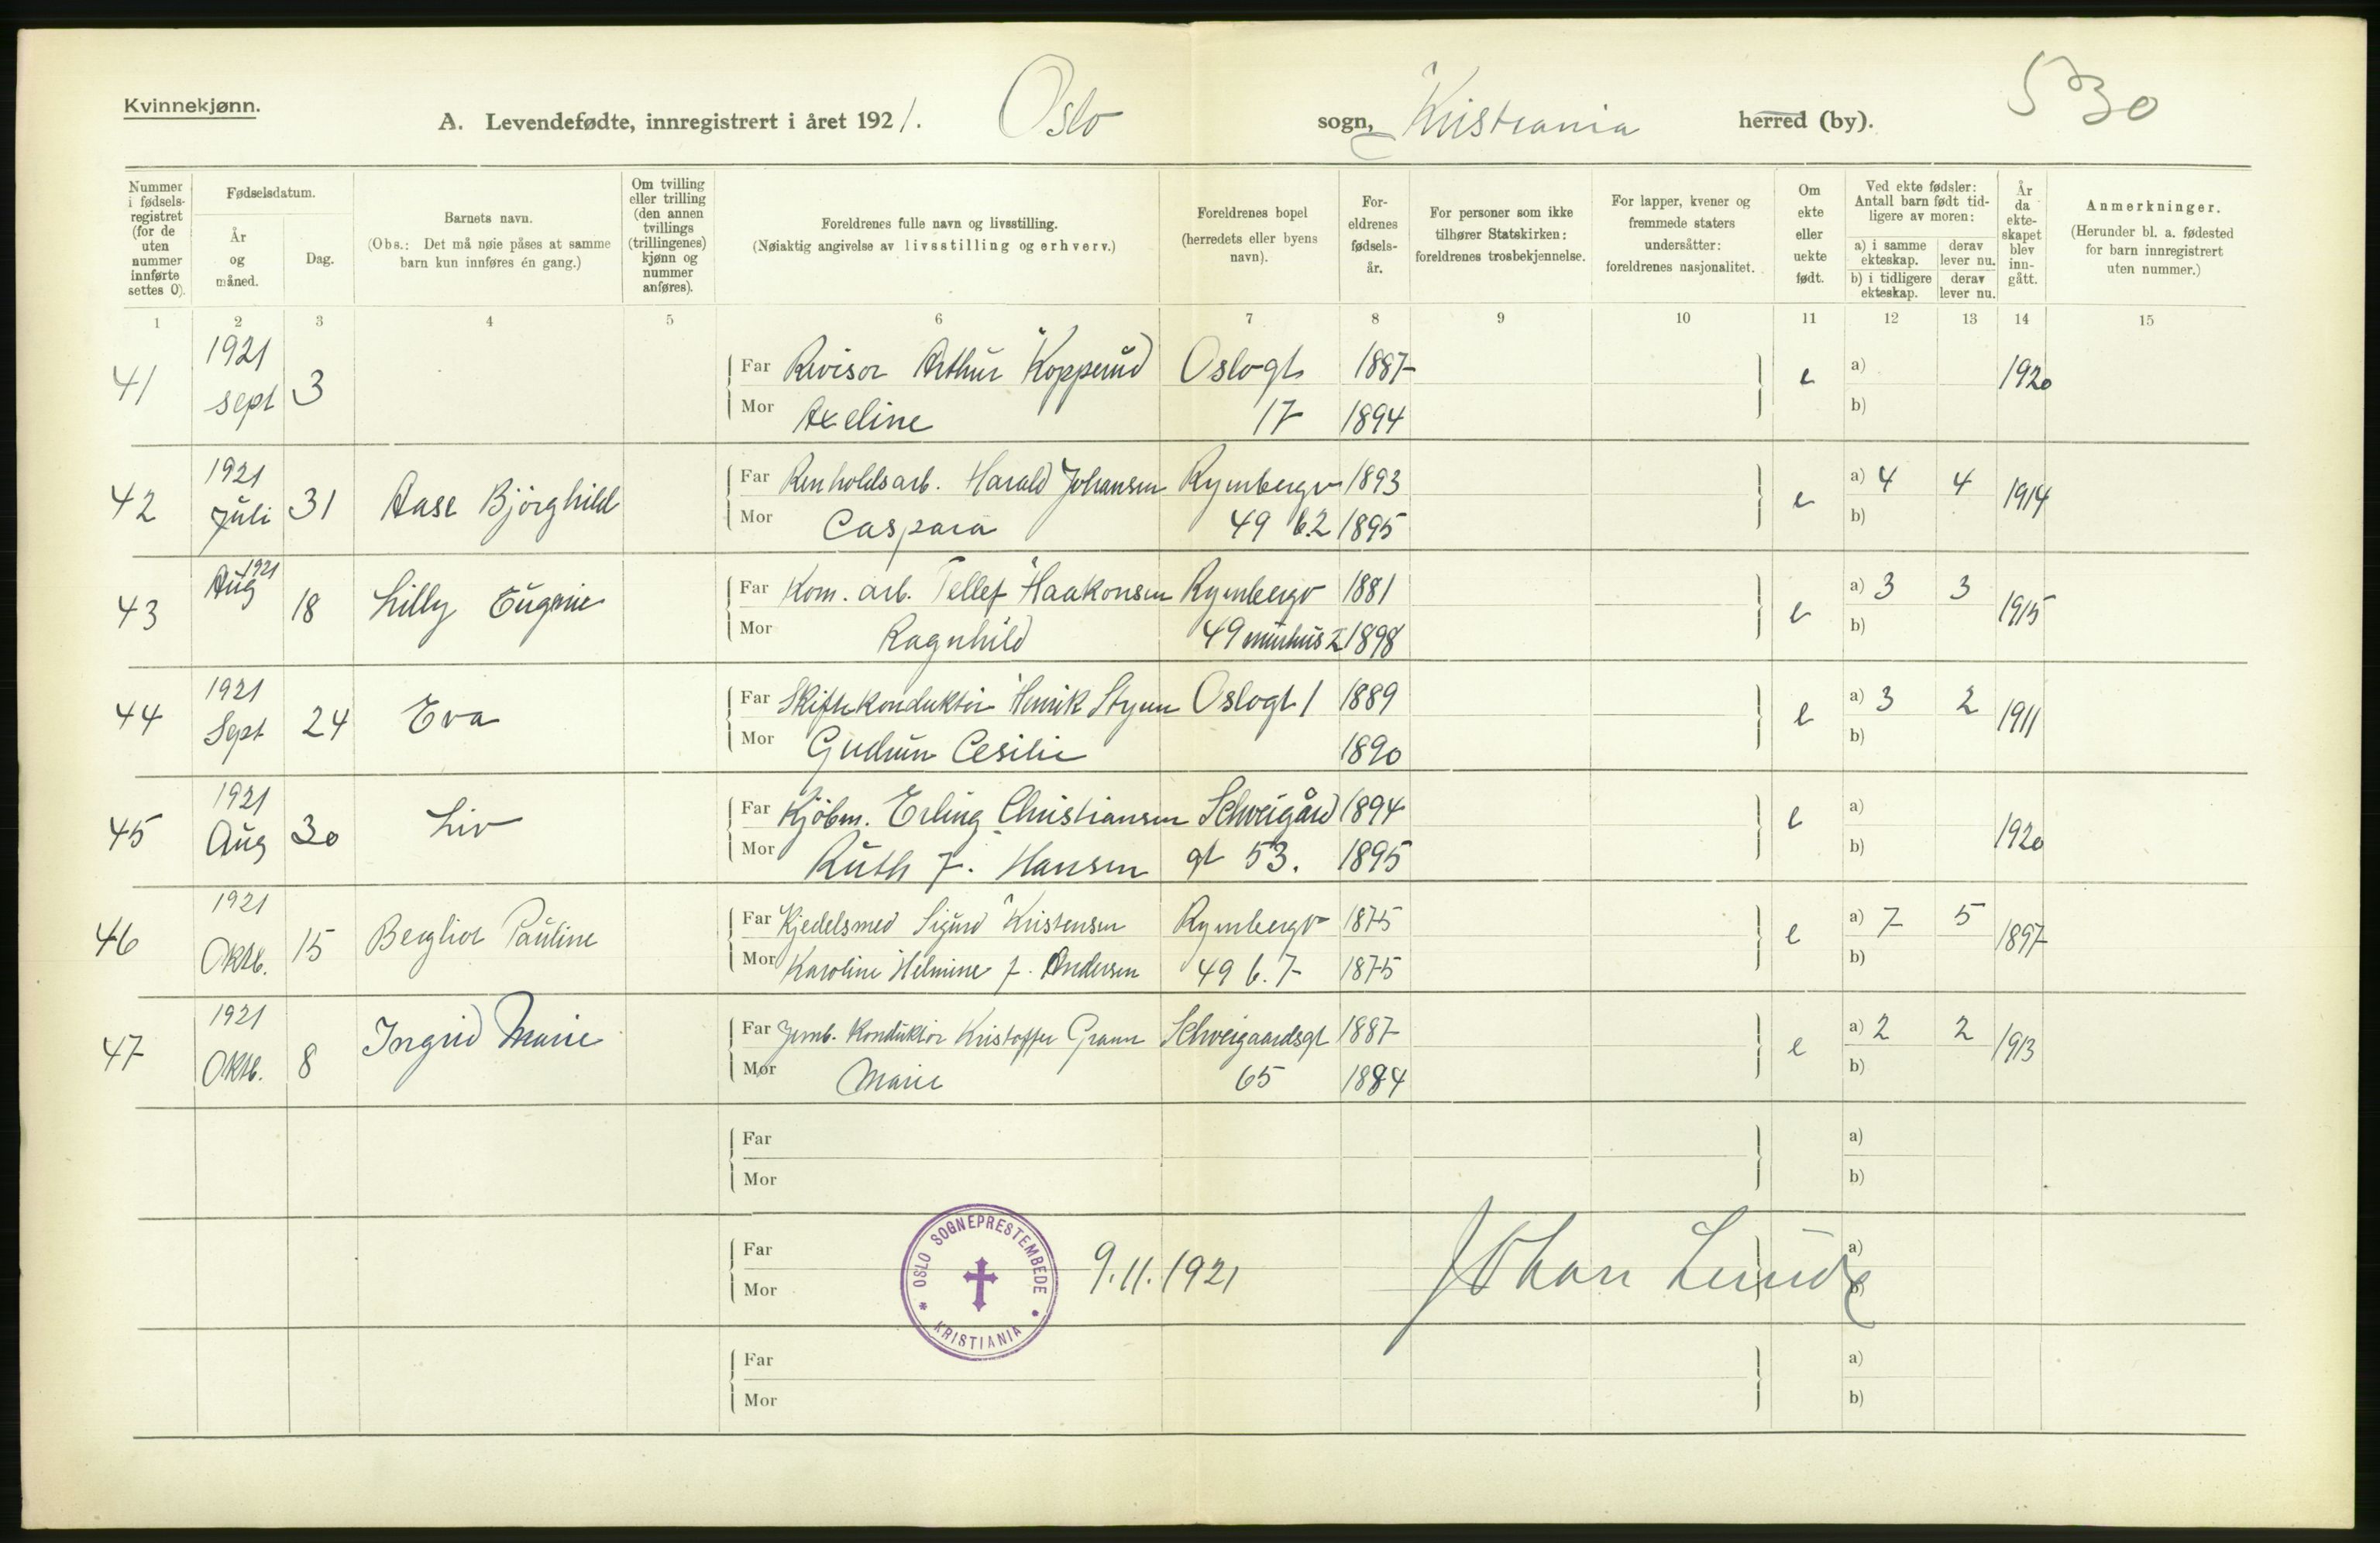 Kvinnekjønn.
A. Levendefødte, innregistrert i året 1921. Oslo sogn, Kristiania herred (by). 530
Nummer i fødselsregistret (for de uten nummer innførte settes 0).
Fødselsdatum.
År og måned.
Dag.
Barnets navn.
(Obs.: Det må nøie påses at samme barn kun innføres én gang.)
Om tvilling eller trilling (den annen tvillings (trillingenes) kjønn og nummer anføres).
Foreldrenes fulle navn og livsstilling.
(Nøiaktig angivelse av livsstilling og erhverv.)
Foreldrenes bopel (herredets eller byens navn).
Foreldrenes fødselsår.
For personer som ikke tilhører Statskirken: foreldrenes trosbekjennelse.
For lapper, kvener og fremmede staters undersåtter: foreldrenes nasjonalitet.
Om ekte eller uekte født.
Ved ekte fødsler: Antall barn født tidligere av moren:
a) i samme ekteskap. derav lever nu.
b) i tidligere ekteskap. derav lever nu.
År da ekteskapet blev inngått.
Anmerkninger.
(Herunder bl. a. fødested for barn innregistrert uten nummer.)
1 2 3 4 5 6 7 8 9 10 11 12 13 14 15
41 1921 sept 3 Far Revisor Arthur Kopperud Oslogt 1887 e a) 1920
Mor Axeline 17 1894 b)
42 1921 Juli 31 Aase Bjørghild Far Renholdsarb. Harald Johansen Rymbergv 1893 e a) 4 4 1914
Mor Caspara 49 b.2 1895 b)
43 Aug 1921 18 Lilly Eugenie Far Kom. arb. Tellef Haakonsen Rymbergv 1881 e a) 3 3 1915
Mor Ragnhild 49 murhus 1898 b)
44 1921 Sept 24 Eva Far Skiftekonduktør Henrik Oslogt 1 1889 e a) 3 2 1911
Mor Gudrun Cesilie 1890 b)
45 1921 Aug 30 Liv Far Kjøbm. Erling Christiansen Schweigård 1894 e a) 1920
Mor Ruth f. Hansen gt 53. 1895 b)
46 1921 Oktb. 15 Bergliot Pauline Far Kjedelsmed Sigurd Kristensen Rymbergv 1875 e a) 7 5 1897
Mor Karoline Helmine f. Andersen 49 b. 7 1875 b)
47 1921 Oktb. 8 Ingrid Marie Far Jernb. Konduktør Kristoffer Schweigaardsgt 1887 e a) 2 2 1913
Mor Marie 65 1884 b)
Far a)
Mor b)
Far a)
Mor b)
OSLO SOGNEPRESTEMBEDE * KRISTIANIA *
9.11.1921 Johan Lunde
Far a)
Mor b)